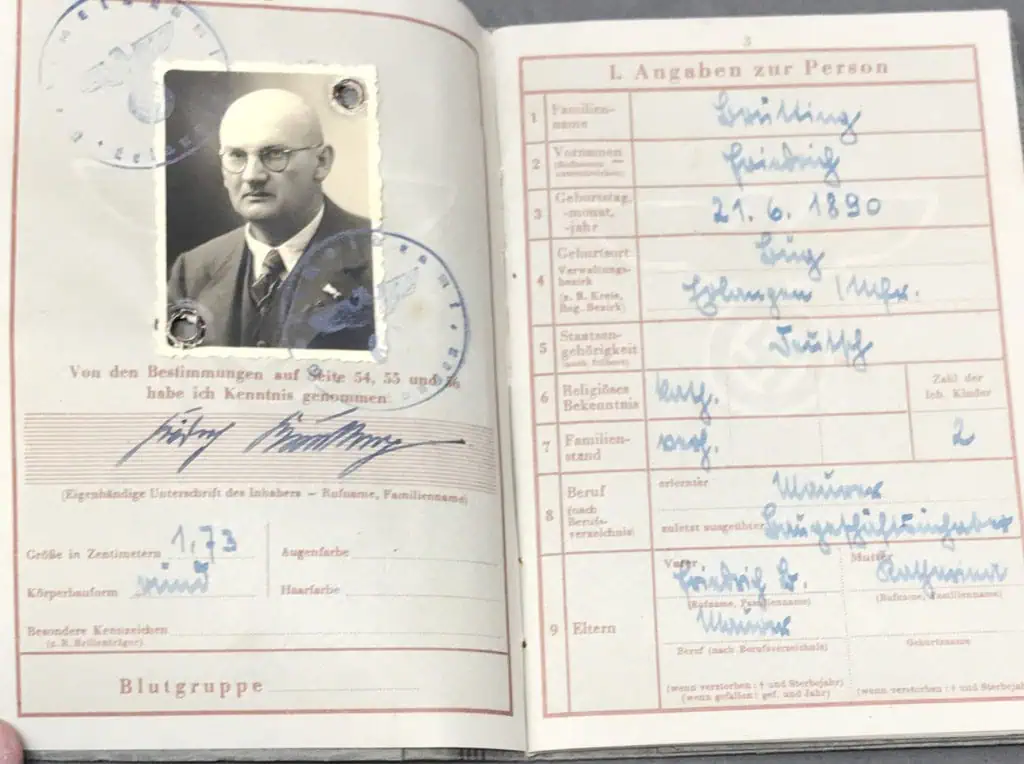 Von den Bestimmungen auf Seite 54, 55 und 56
habe ich Kenntnis genommen
(Eigenhändige Unterschrift des Inhabers – Rufname, Familienname)
Größe in Zentimetern 1,73
Augenfarbe
Körperbauform
Haarfarbe
Besondere Kennzeichen
(z. B. Brillenträger)
Blutgruppe
3
I. Angaben zur Person
1 Familien-
name Brütting
2 Vornamen
Friedrich
3 Geburtstag,
-monat,
-jahr 21. 6. 1890
4 Geburtsort Bug
Verwaltungs-
bezirk
(z. B. Kreis,
Reg. Bezirk) Erlangen
5 Staatsan-
gehörigkeit Deutsch
6 Religiöses
Bekenntnis kath.
Zahl der
leb. Kinder
2
7 Familien-
stand verh.
8 Beruf
(nach
Berufs-
verzeichnis)
erlernter Maurer
zuletzt ausgeübter Baugeschäftsinhaber
9 Eltern
Vater Friedrich B.
(Rufname, Familienname)
Maurer
Beruf (nach Berufsverzeichnis)
(wenn verstorben: † und Sterbejahr)
(wenn gefallen: gef. und Jahr)
Mutter Katharina
(Rufname, Familienname)
Geburtsname
(wenn verstorben: † und Sterbejahr)